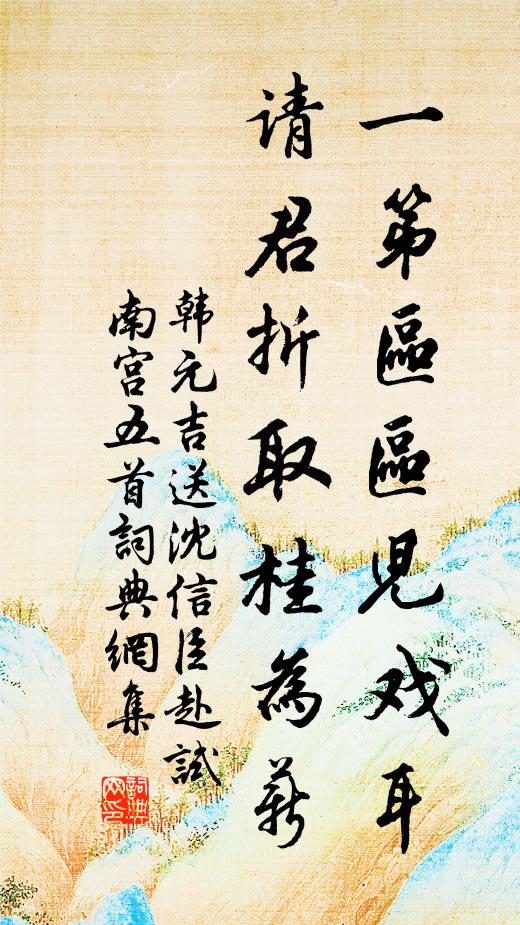 一第區區児戏耳
请君折取桂為薪
韩元吉送沈信臣赴試
南宫五首詞典網集
詞典
网印